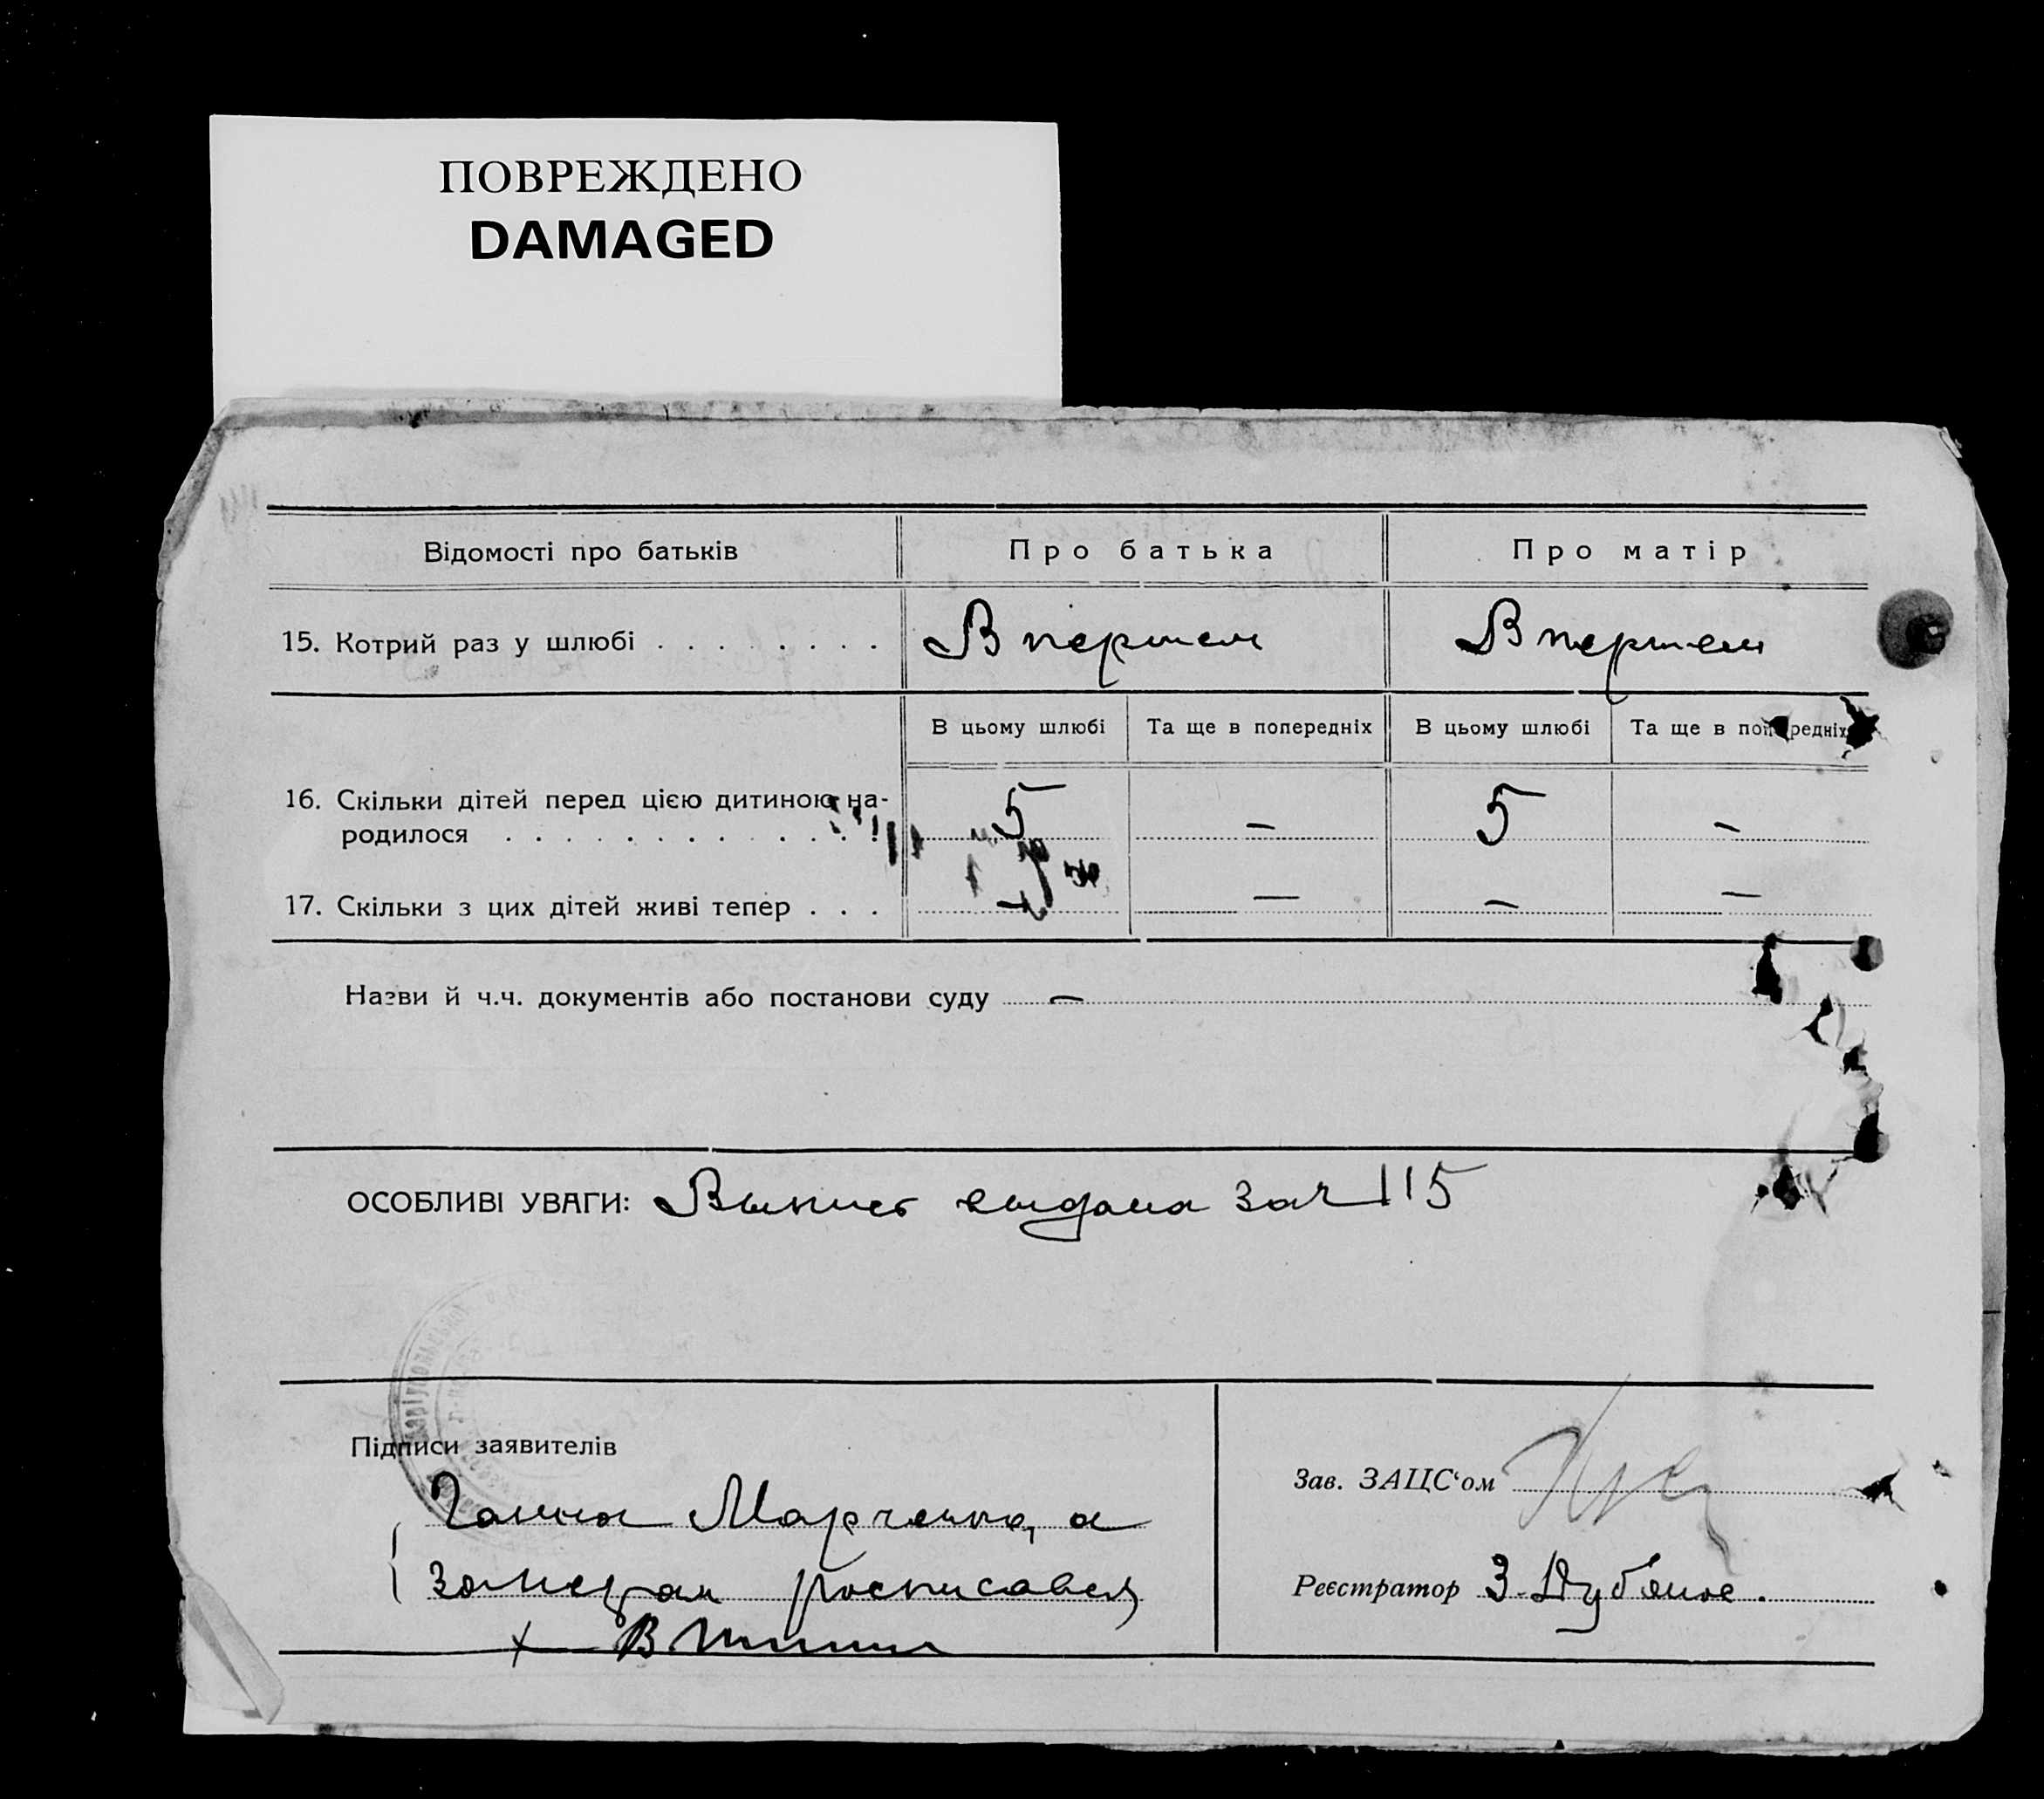 ПОВРЕЖДЕНО
DAMAGED
Відомості про батьків Про батька Про матір
15. Котрий раз у шлюбі . . . . . . . . В первом В первом
В цьому шлюбі Та ще в попередніх В цьому шлюбі Та ще в попередніх
16. Скільки дітей перед цією дитиною на-
родилося . . . . . . . . . . . . 5 — 5 —
17. Скільки з цих дітей живі тепер . . . — — — —
Назви й ч.ч. документів або постанови суду —
ОСОБЛИВІ УВАГИ: Выпись выдана за ч 115
Підписи заявителів
Ганна Марченко, а
Зав. ЗАЦС‘ом
росписався
Реєстратор З. Дубяное.